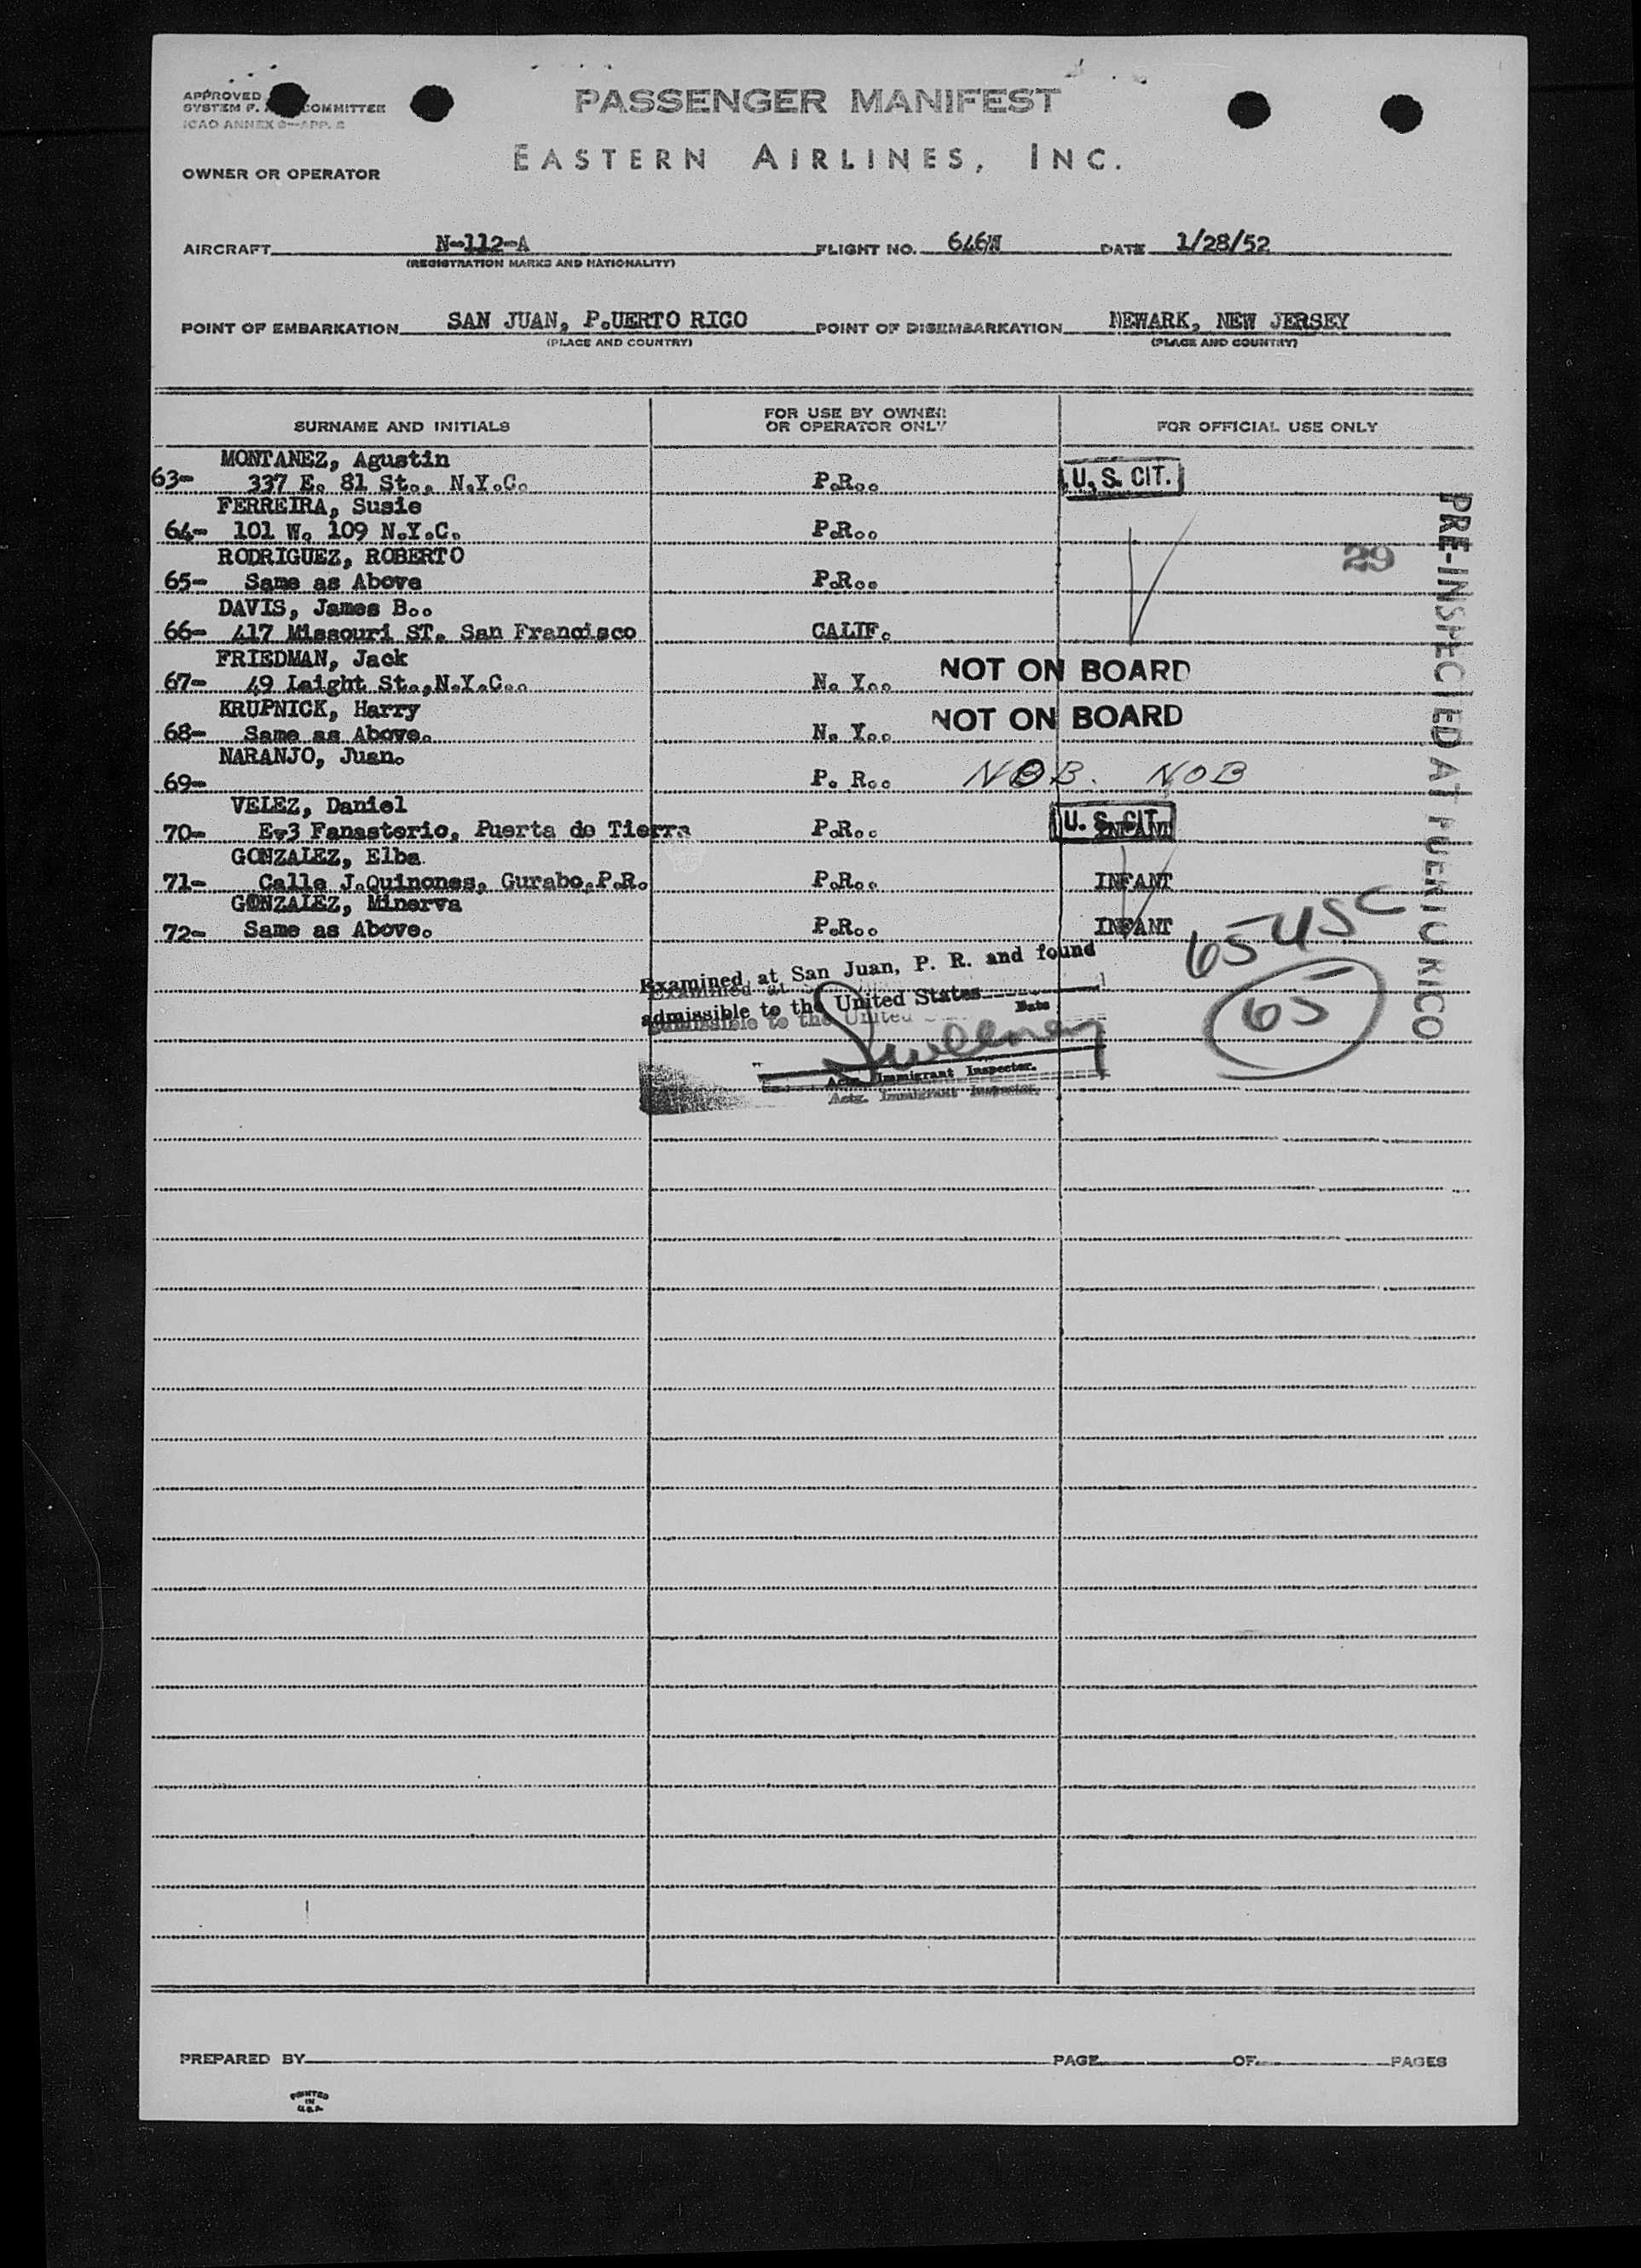 APPROVED
SYSTEM F. COMMITTEE
ICAO ANNEX 9—APP. 2
PASSENGER MANIFEST
EASTERN AIRLINES, INC.
OWNER OR OPERATOR
AIRCRAFT N-112-A FLIGHT NO. 646W DATE 1/28/52
(REGISTRATION MARKS AND NATIONALITY)
POINT OF EMBARKATION SAN JUAN, P.UERTO RICO POINT OF DISEMBARKATION NEWARK, NEW JERSEY
(PLACE AND COUNTRY) (PLACE AND COUNTRY)
SURNAME AND INITIALS FOR USE BY OWNER OR OPERATOR ONLY FOR OFFICIAL USE ONLY
MONTANEZ, Agustin
63- 337 E. 81 St., N.Y.C. P.R.. U. S. CIT.
FERREIRA, Susie
64- 101 W. 109 N.Y.C. P.R..
RODRIGUEZ, ROBERTO
29
65- Same as Above P.R..
DAVIS, James B..
66- 417 Missouri ST. San Francisco CALIF.
FRIEDMAN, Jack
67- 49 Laight St.,N.Y.C.. N. Y.. NOT ON BOARD
KRUPNICK, Harry
68- Same as Above. N. Y.. NOT ON BOARD
NARANJO, Juan.
69- P. R.. NOB. NOB
VELEZ, Daniel
70- E-3 Fanasterio, Puerta de Tierra P.R.. U. S. CIT. INFANT
GONZALEZ, Elba
71- Calle J.Quinones, Gurabo,P.R. P.R.. INFANT
GONZALEZ, Minerva
72- Same as Above. P.R.. INFANT
PRE-INSPECTED AT PUERTO RICO
65 USC
65
Examined at San Juan, P. R. and found
admissible to the United States
Date
Actg. Immigrant Inspector.
Examined at
admissible to the United
Actg. Immigrant Inspector.
PREPARED BY PAGE OF PAGES
PRINTED
IN
U.S.A.